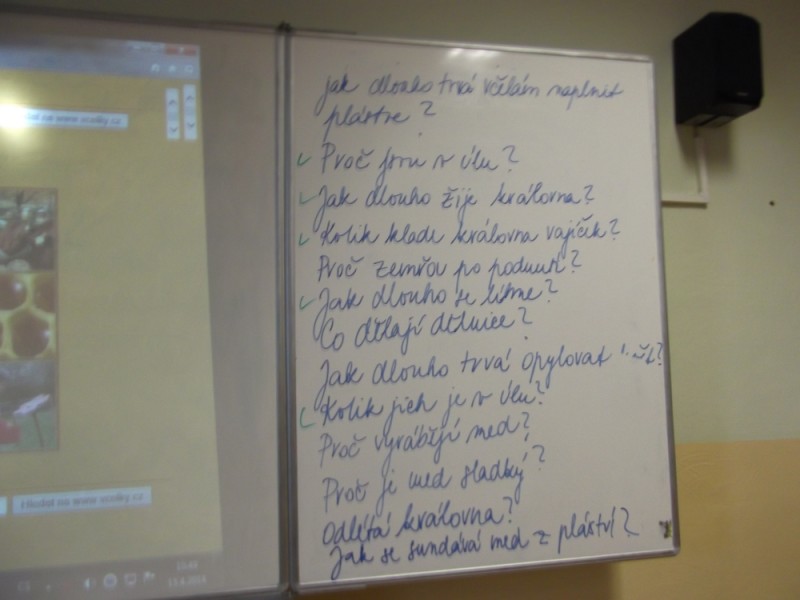 jak dlouho trvá včelám naplnit
plástve?
Proč jsou v úlu?
Jak dlouho žije královna?
Kolik klade královna vajíček?
Proč zemřou po
Jak dlouho se líhne?
Co dělají dělnice?
Jak dlouho trvá opylovat
Kolik jich je v úlu?
Proč vyrábějí med?
Proč je med sladký?
Odlétá královna?
Jak se sundává med z pláství?